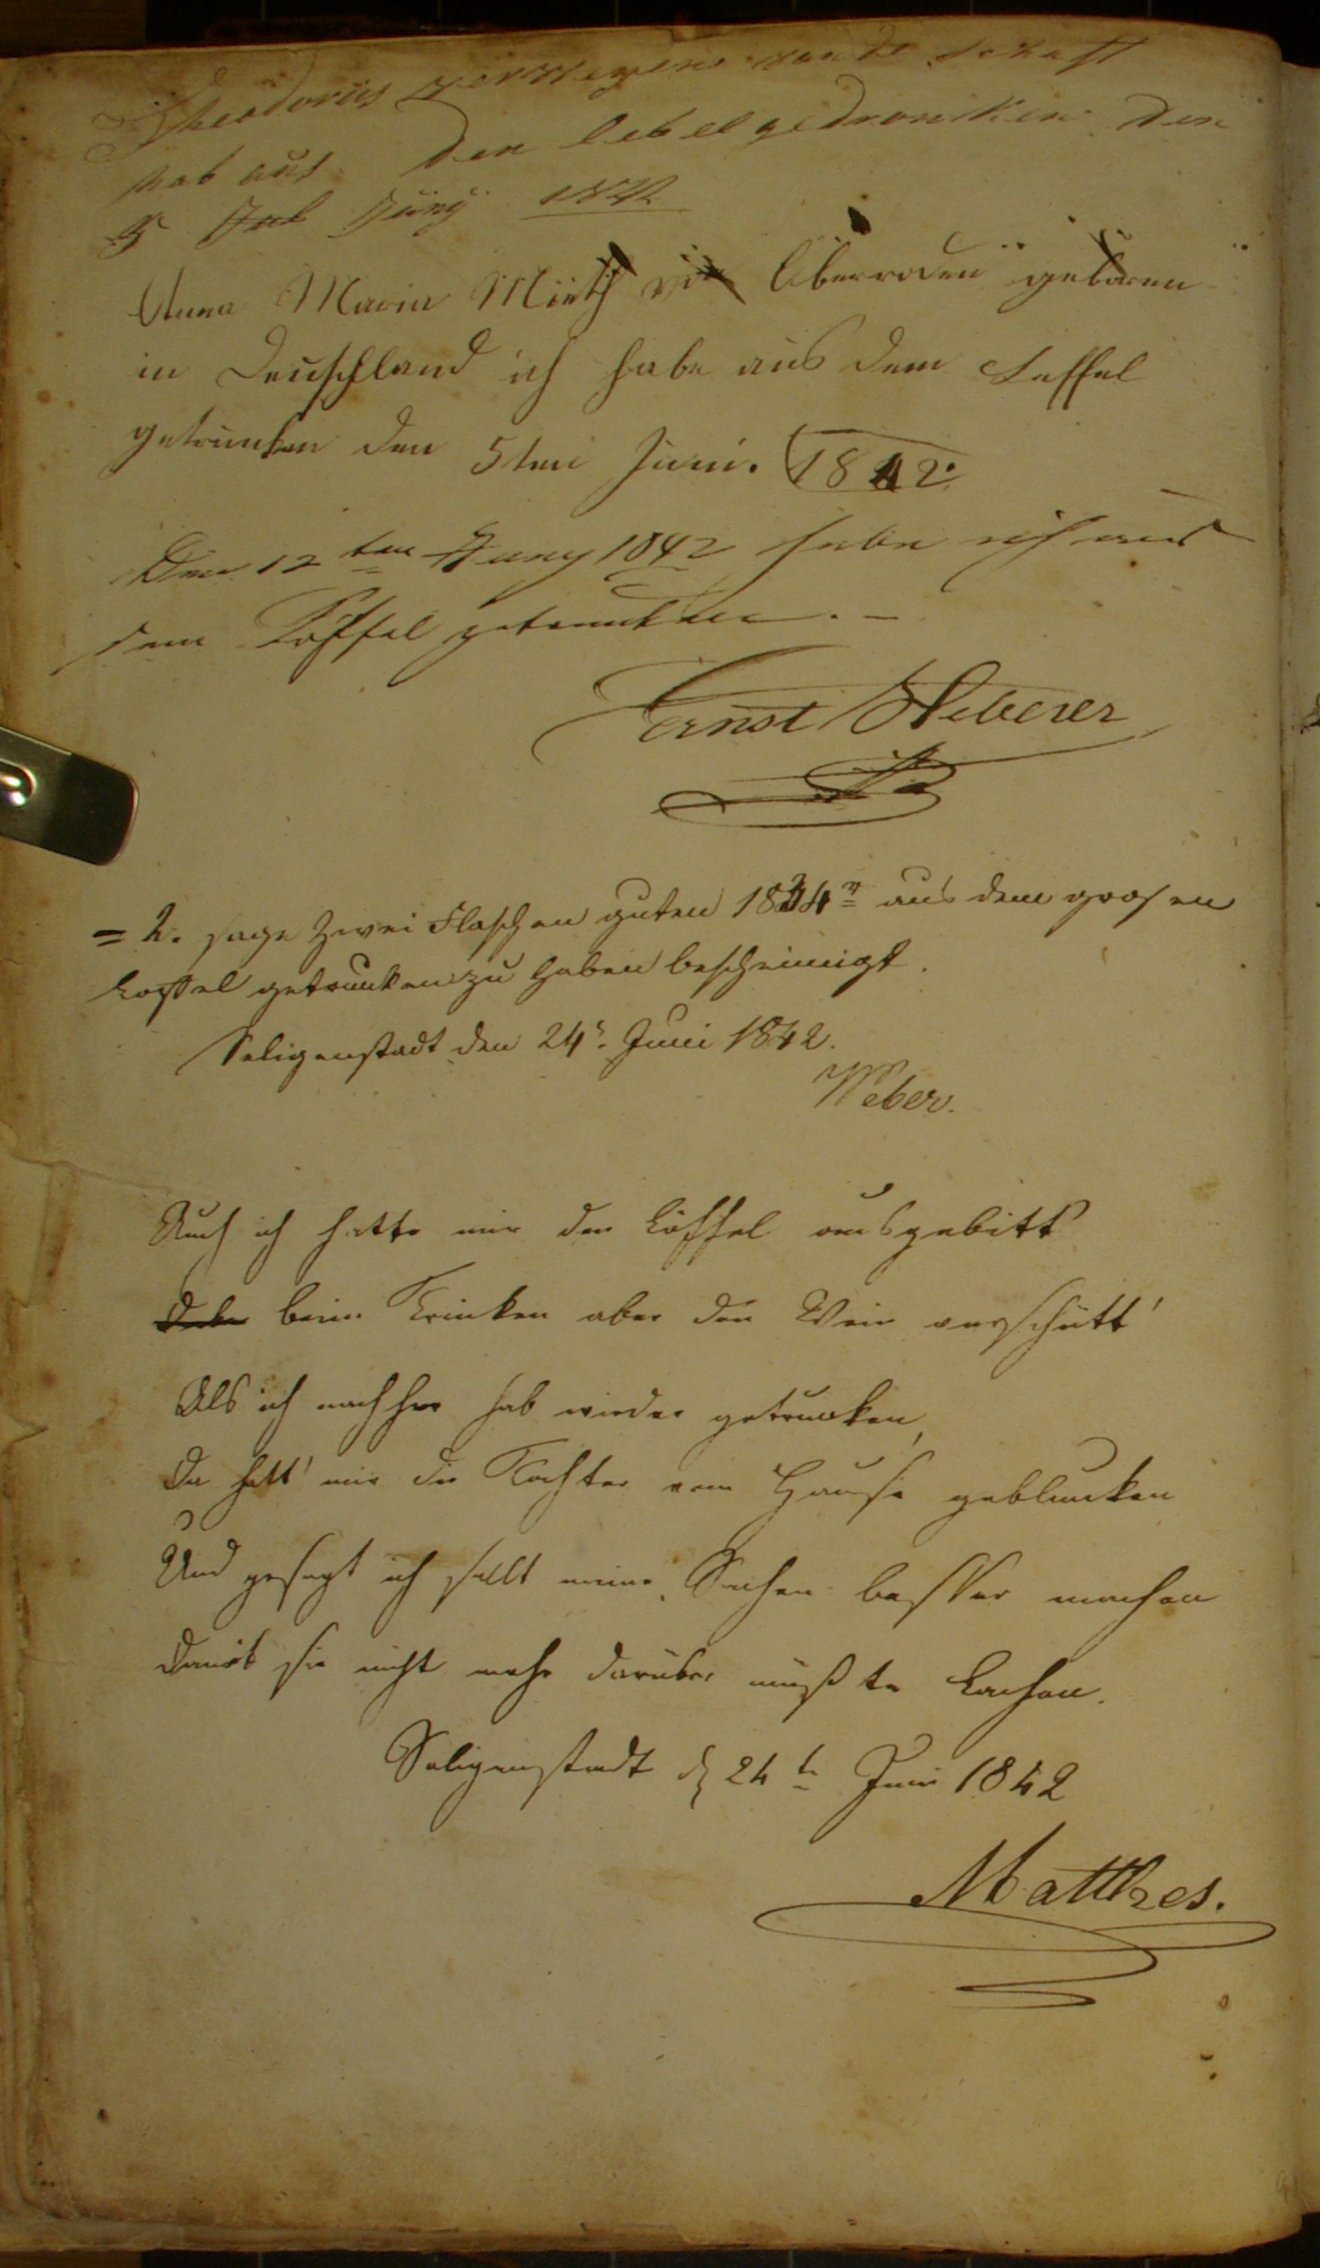 Theodorus van de Schaft
hab aus den lebel gedronken den
5 Juny 1842
Anna Maria Mieth von Oberroden geboren
in Deuschland ich habe aus dem Leffel
getrunken den 5ten Juni. 1842.
Den 12ten Juny 1842 habe ich aus
dem Löffel getrunken. –
Ernst Heberer
= 2. sage Zwei Flaschen guten 1834r aus dem grosen
Loffel getrunken zu haben bescheinigt.
Seligenstadt den 24t. Juni 1842.
Weber.
Auch ich hatte mir den Löffel ausgebitt
beim Trinken aber den Wein verschütt'
Als ich nachher hab wieder getrunken,
Da hatt' mir die Tochter vom Hause geblunken
Und gesagt ich sollt meine Sachen besser machen
Damit sie nicht mehr darüber müßte Lachen.
Seligenstadt d 24te Juni 1842
Matthes.